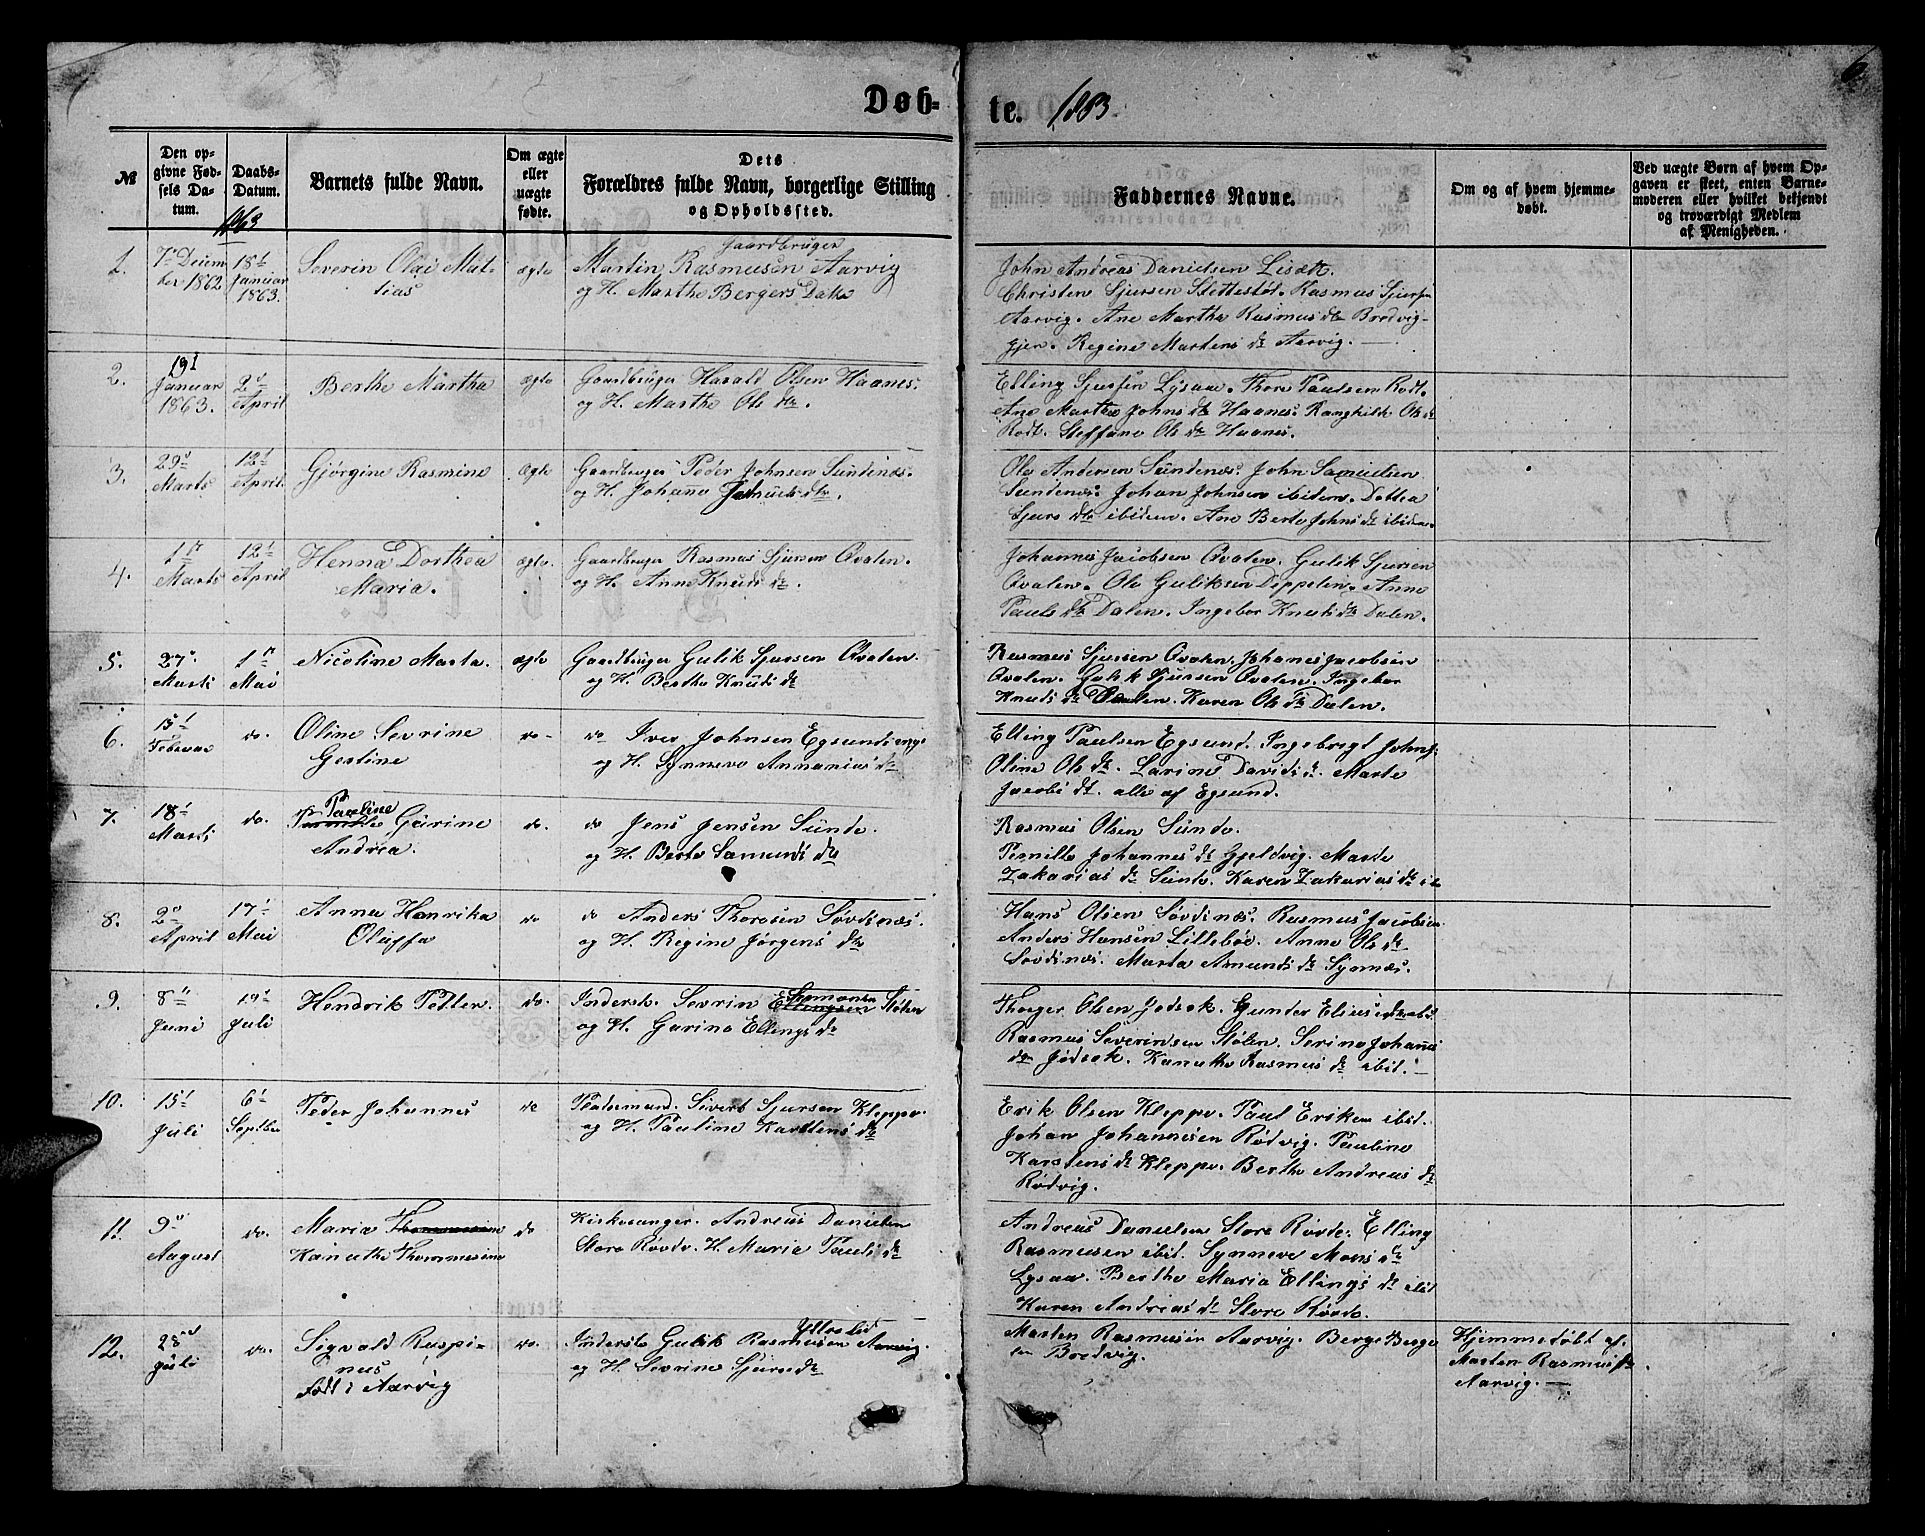 Døb-
te. 1863.
6
№
Den op-
givne Fød-
sels Da-
tum.
Daabs-
Datum.
1863
Barnets fulde Navn.
Om ægte
eller
uægte
fødte.
Dets
Forældres fulde Navn, borgerlige Stilling
og Opholdssted.
Faddernes Navne.
Om og af hvem hjemme-
døbt.
Ved uægte Børn af hvem Op-
gaven er skeet, enten Barne-
moderen eller hvilket bekjendt
og troværdigt Medlem
af Menigheden.
1.
7de Decem-
ber 1862
18de
Januar
1863.
Severin Olai Mat-
tias
ægte
Gaardbruger
Martin Rasmusen Aarvig
og H. Marthe Bergers Datr
John Andreas Danielsen Lisæte.
Christen Sjursen Slettestøl. Rasmus Sjursen
Aarvig. Ane Marthe Rasmus dtr Brødvig-
gjen. Regine Martens dr Aarvig.
2.
19de
Januar
1863.
2den
April
Berthe Martha
ægte
Gaardbruger Harald Olsen Haanes.
og H. Marthe Ols dtr.
Elling Sjursen Lysaa. Thore Paulsen Rodt.
Ane Marthe Johns dtr Haanes. Ranghilde Ols dr
Rodt. Steffane Ols dr Haanes.
3.
29de
Marts
12te
April.
Gjørgine Rasmine
Ægte
Gaardbruger Peder Johnsen Sundenæs.
og H. Johanne Jetmunds dtr.
Ole Andersen Sundenæs. John Samuelsen
Sundenæs. Johan Johnsen ibidem. Dottea
Sjurs dtr ibidem. Ane Berte Johns dr ibidem.
4.
1ste
Marts
12te
April
Henna Dorthea
Maria.
ægte.
Gaardbruger Rasmus Sjursen Qvalen.
og H. Anne Knuds dr.
Johannes Jacobsen Qvalen. Gulik Sjursen
Qvalen. Ole Guliksen Deppelen. Anne
Pauls dtr Dalen. Ingebor Knuds dtr Dalen.
5.
27de
Marts
1ste
Mai
Nicoline Marta.
ægte
Gaardbruger Gulik Sjursen Qvalen.
og H. Berthe Knuds dr
Rasmus Sjursen Qvalen. Johanes Jacobsen
Qvalen. Gulik Sjursen Qvalen. Ingebor
Knuds dr Dalen. Karen Ols dr Dalen.
6.
15de
Februar
do.
Oline Sevrine
Gestine
do
do Iver Johnsen Egsundseng
og H. Synneve Annanias dr
Elling Paulsen Egsund. Ingebregt Johns.
Oline Ols dr. Larine Davids dr. Marte
Jacobs dr. alle af Egsund.
7.
18de
Marts
do.
Pauline
Gurine
Andrea.
do.
do Jens Jensen Sunde.
og H. Berte Samunds dtr
Rasmus Olsen Sunde.
Pernille Johannes dr Gjeldvig. Marte
Zakarias dr Sunde. Karen Zakarias dr ib
8.
2den
April
17de
Mai
Anna Henrika
Oluffa
do
do Anders Thoresen Søvdinæs.
og H. Regine Jørgens dtr
Hans Olsen Søvdinæs. Rasmus Jacobsen
Anders Hansen Lillebøe. Anne Ols dr
Søvdinæs. Marta Amunds dr Synnæs.
9.
8de
Juni
19de
Juli
Hendrik Petter.
do.
Inderste. Sevrin Ellingsen Stølen
og H. Gurine Ellings dr
Thorger Olsen Jødsok. Gunder Elius dr ibid.
Rasmus Severinsen Stølen. Serine Johannes
dr Jødsok. Kanuthe Rasmus dr ibid.
10.
15de
Juli
6te
Septbr
Peder Johannes
do
Pladsmand. Sivert Sjursen Kleppe.
og H. Pauline Karstens dtr
Erik Olsen Kleppe. Paul Eriksen ibid.
Johan Johannesen Rødvig. Pauline
Karstens dr Kleppe. Berthe Andreas dr
Rødvig.
11.
9de
August
do.
Maria Thommesine
Kanuthe Thommesine
do
Kirkesanger. Andreas Danielsen
Store Røvde. H. Maria Pauls dr
Andreas Danielsen Store Røvde. Elling
Rasmusen ibid. Synneve Mons dr
Lysaa. Berthe Maria Ellings dr ibid
Karen Andreas dr Store Røvde.
12.
28de
Juli
do.
Sigvald Ruspi-
nus
Født i Aarvig
do.
Yttrelid
Inderste Gulik Rasmusen Aarvig.
og H. Sevrine Sjurs dtr
Marten Rasmusen Aarvig. Berge Berge-
sen Brødvig.
Hjemmedøbt af
Marten Rasmus
Aarvig.